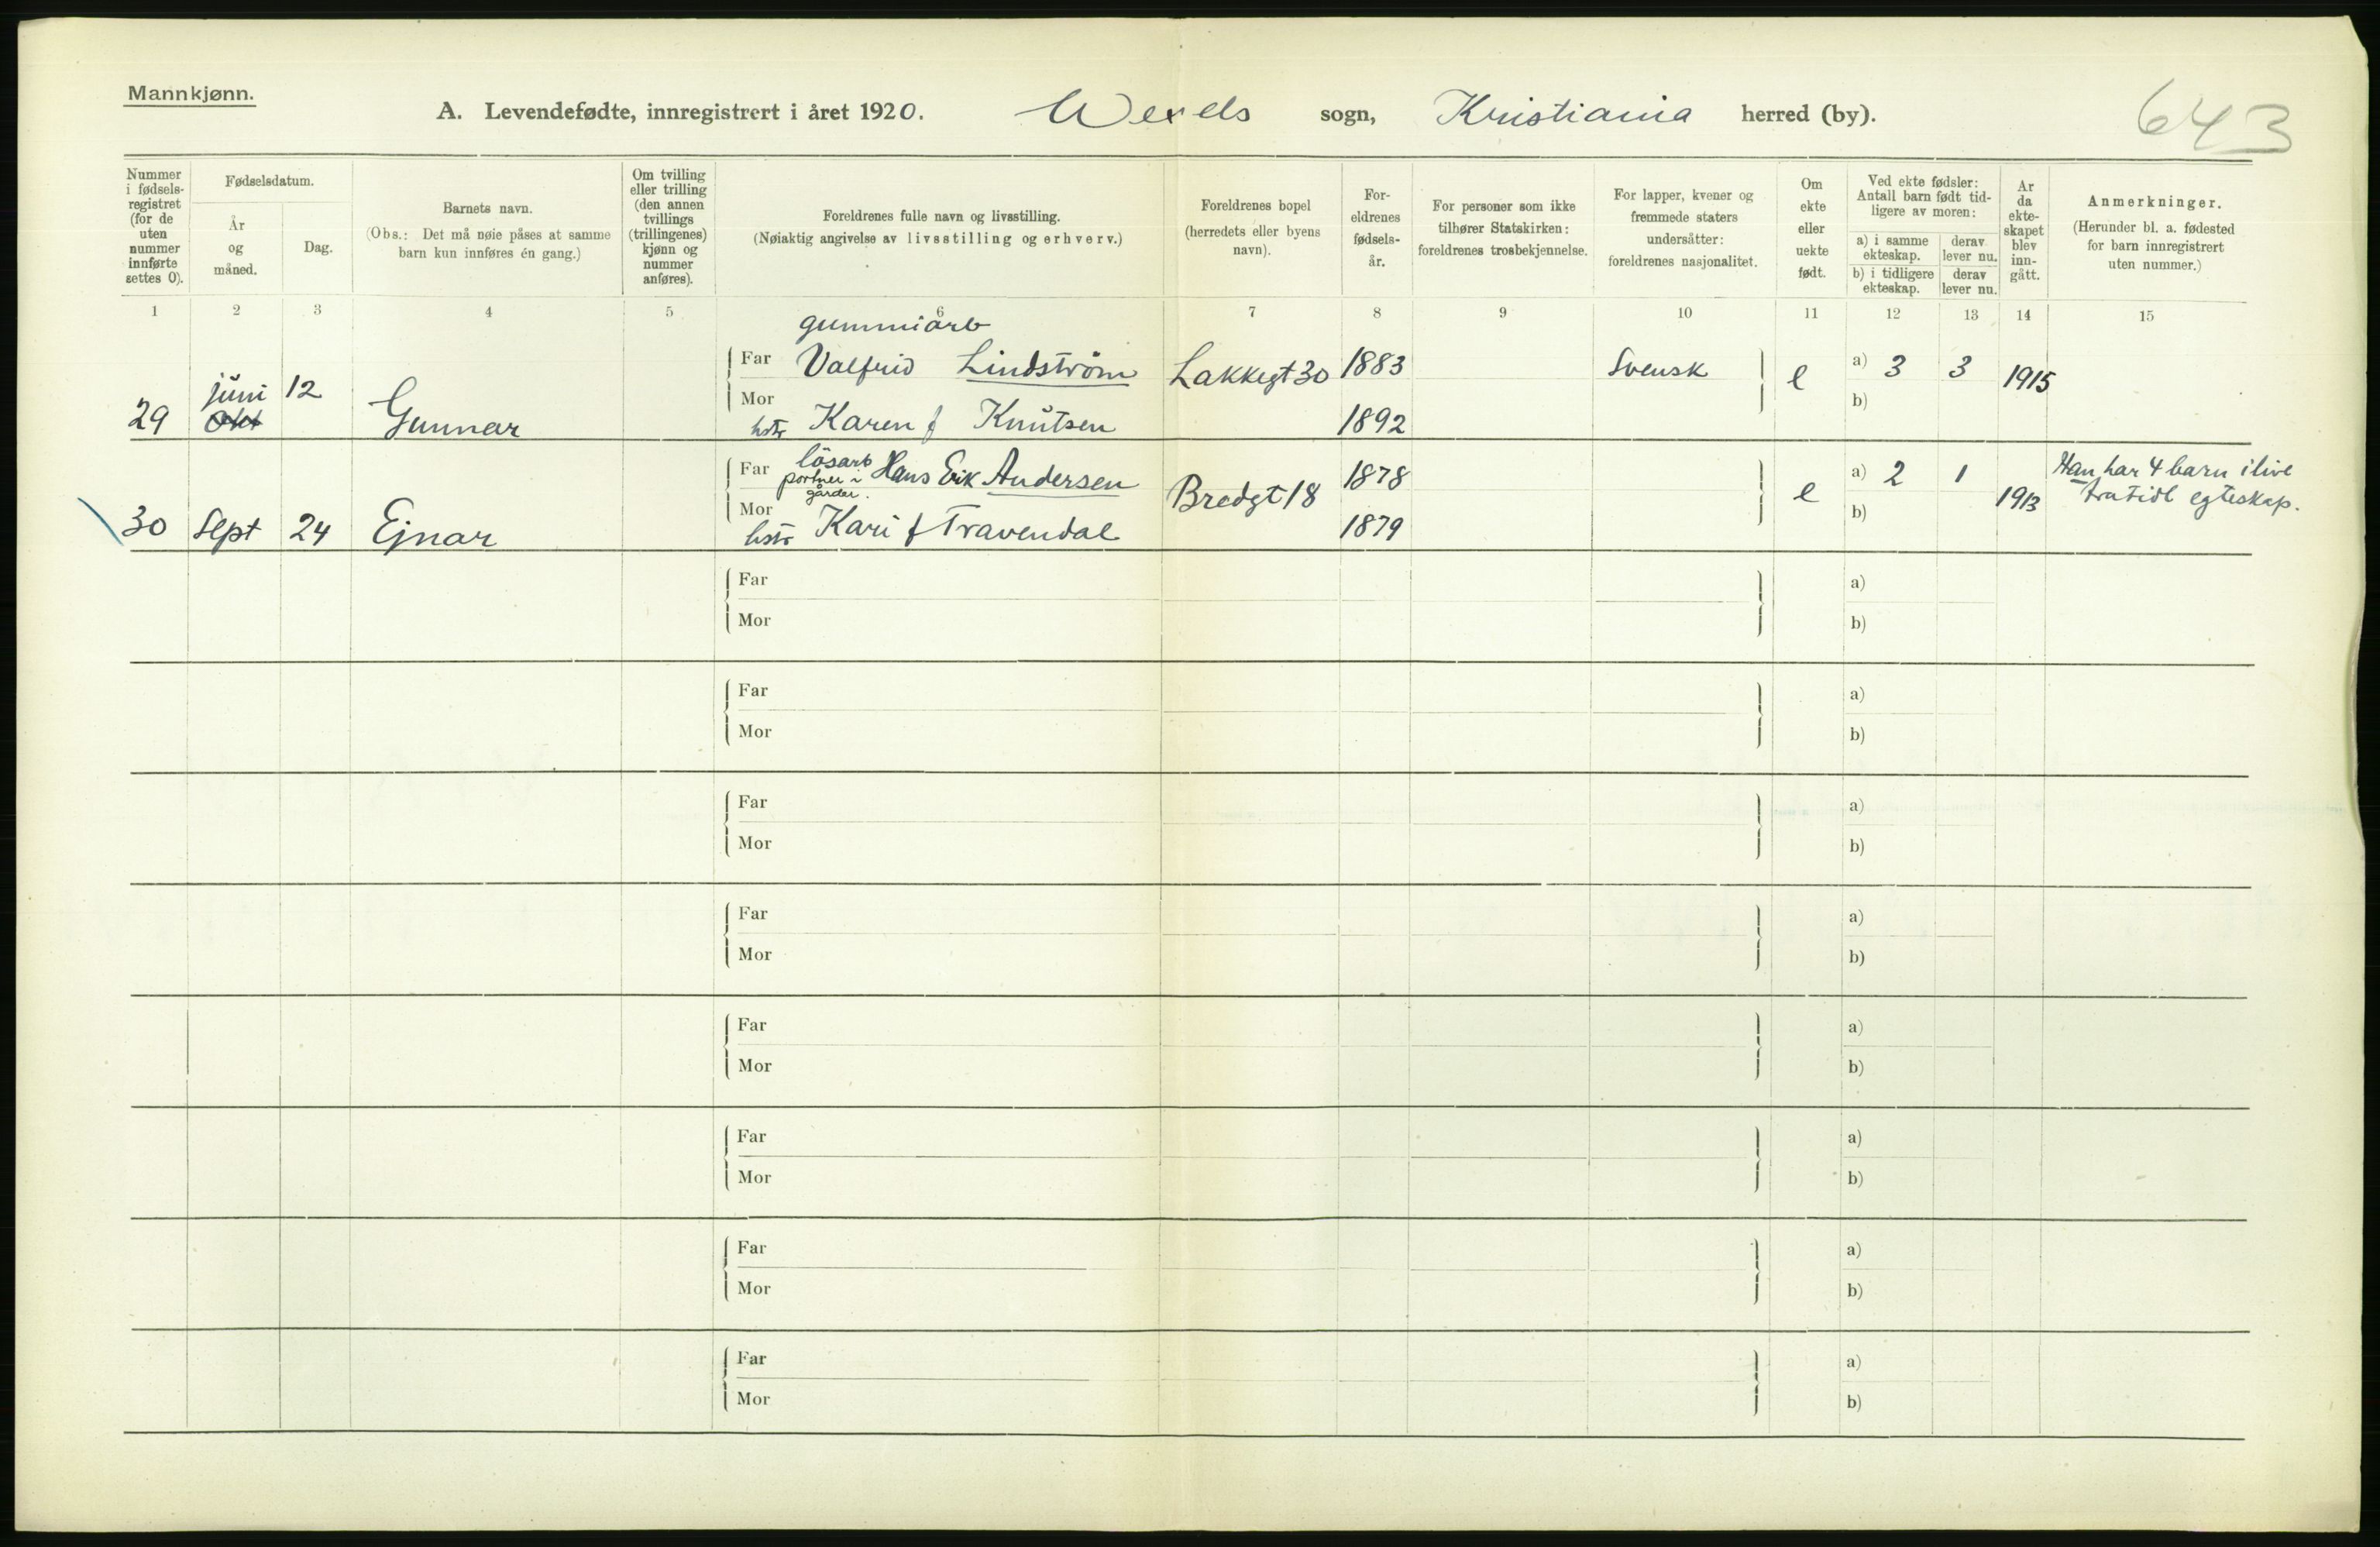 Mannkjønn.
A. Levendefødte, innregistrert i året 1920. Wexels sogn, Kristiania herred (by).
643
Nummer i fødsels-registret (for de uten nummer innførte settes 0).
Fødselsdatum.
År og måned.
Dag.
Barnets navn.
(Obs.: Det må nøie påses at samme barn kun innføres én gang.)
Om tvilling eller trilling (den annen tvillings (trillingenes) kjønn og nummer anføres).
Foreldrenes fulle navn og livsstilling.
(Nøiaktig angivelse av livsstilling og erhverv.)
Foreldrenes bopel (herredets eller byens navn).
For-eldrenes fødsels-år.
For personer som ikke tilhører Statskirken: foreldrenes trosbekjennelse.
For lapper, kvener og fremmede staters undersåtter: foreldrenes nasjonalitet.
Om ekte eller uekte født.
Ved ekte fødsler: Antall barn født tid-ligere av moren:
a) i samme ekteskap.
derav lever nu.
b) i tidligere ekteskap.
derav lever nu.
År da ekte-skapet blev inn-gått.
Anmerkninger.
(Herunder bl. a. fødested for barn innregistrert uten nummer.)
1 2 3 4 5 6 7 8 9 10 11 12 13 14 15
gummiarb
Far Valfrid Lindstrøm Lakkegt 30 1883 Svensk e a) 3 3 1915
juni 12
29 Okt Gunnar
Mor hstr Karen f Knutsen 1892 b)
Far løsarb portner i gårder. Hans Erik Andersen Bredgt 18 1878 e a) 2 1 1913 Han har 4 barn ilive
fra tidl egteskap.
30 Sept 24 Ejnar
Mor hstr Kari f Travendal 1879 b)
Far a)
Mor b)
Far a)
Mor b)
Far a)
Mor b)
Far a)
Mor b)
Far a)
Mor b)
Far a)
Mor b)
Far a)
Mor b)
Far a)
Mor b)